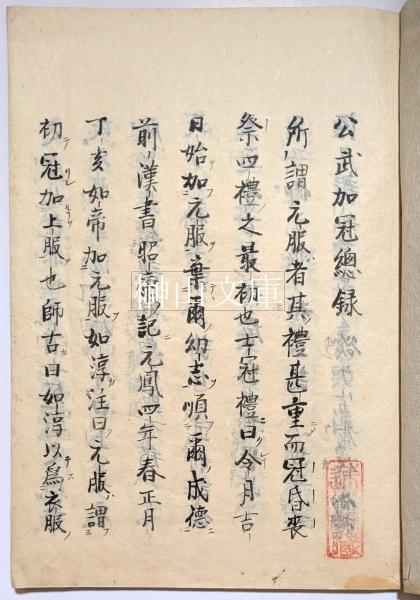 公武加冠總録
所謂元服者其禮甚重而冠昏喪
祭四禮之最初也士冠禮曰令月吉
日始加元服棄爾幼志順爾成德
前漢書昭帝記元鳳四年春正月
丁亥如帝加元服如淳注曰元服謂
初冠加上服也師古曰如淳以爲衣服
榊山文庫